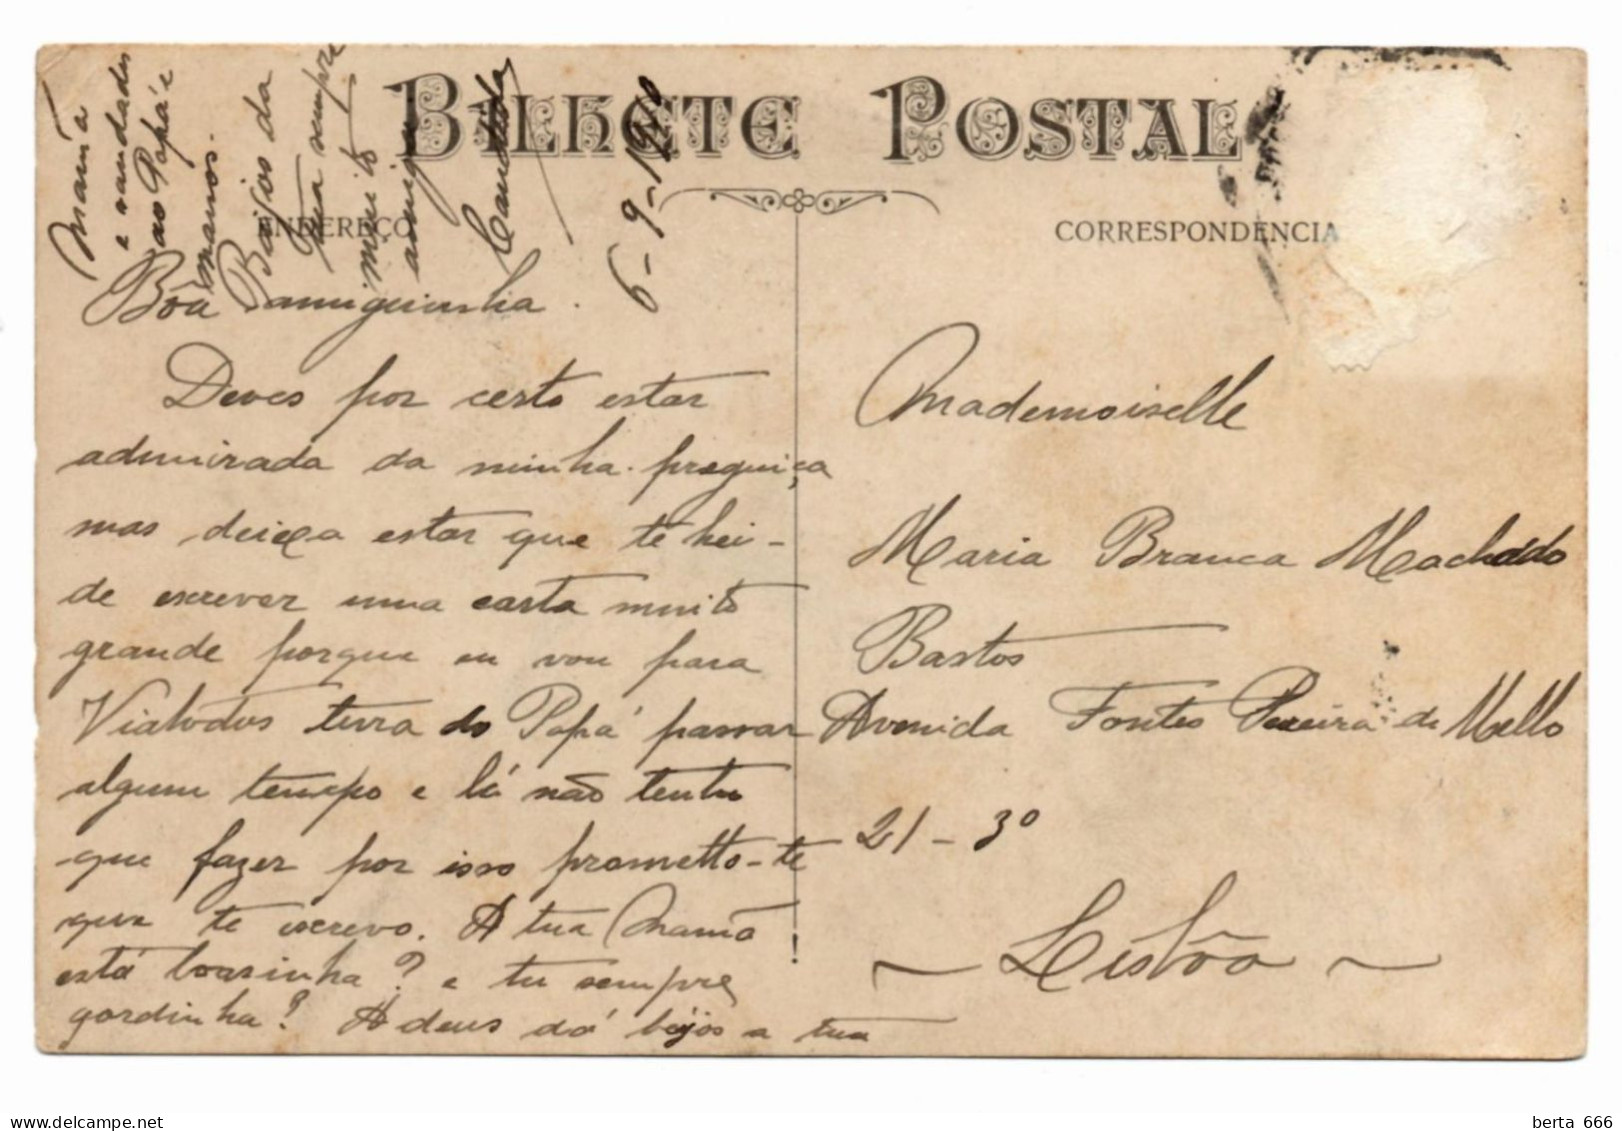 BILHETE POSTAL
ENDEREÇO
CORRESPONDENCIA
6-9-1910
Bôa amiguinha.
Deves por certo estar
admirada da minha preguiça
mas deixa estar que te hei-
de escrever uma carta muito
grande porque eu vou para
Viatodos terra do Papá passar
algum tempo e lá não tenho
que fazer por isso prometto-te
que te escrevo. A tua Mamã
está boasinha? e tu sempre
gordinha? Adeus dá beijos a tua
Mamã
e saudades
ao Papá e
manos.
Beijos da
tua sempre
muito
amiga
Candida
Mademoiselle
Maria Branca Machado
Bastos
Avenida Fontes Pereira de Mello
21-3º
~ Lisbôa ~
berta 666